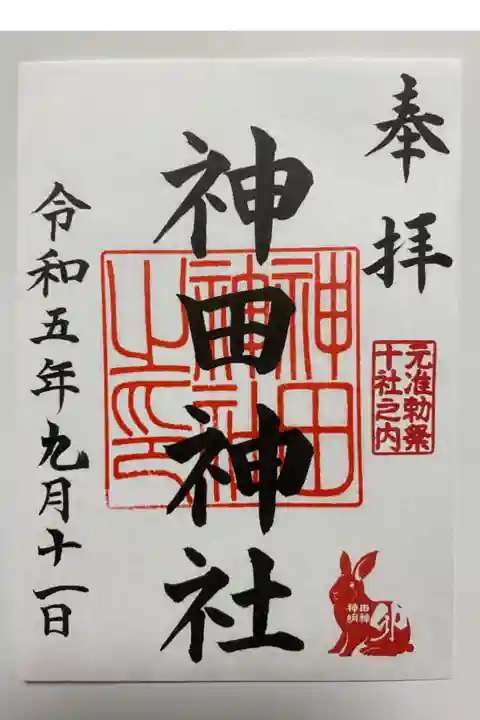 奉拝
元准勅祭
十社之内
卯
神田
明神
神田神社
神田
神社
之印
令和五年九月十一日